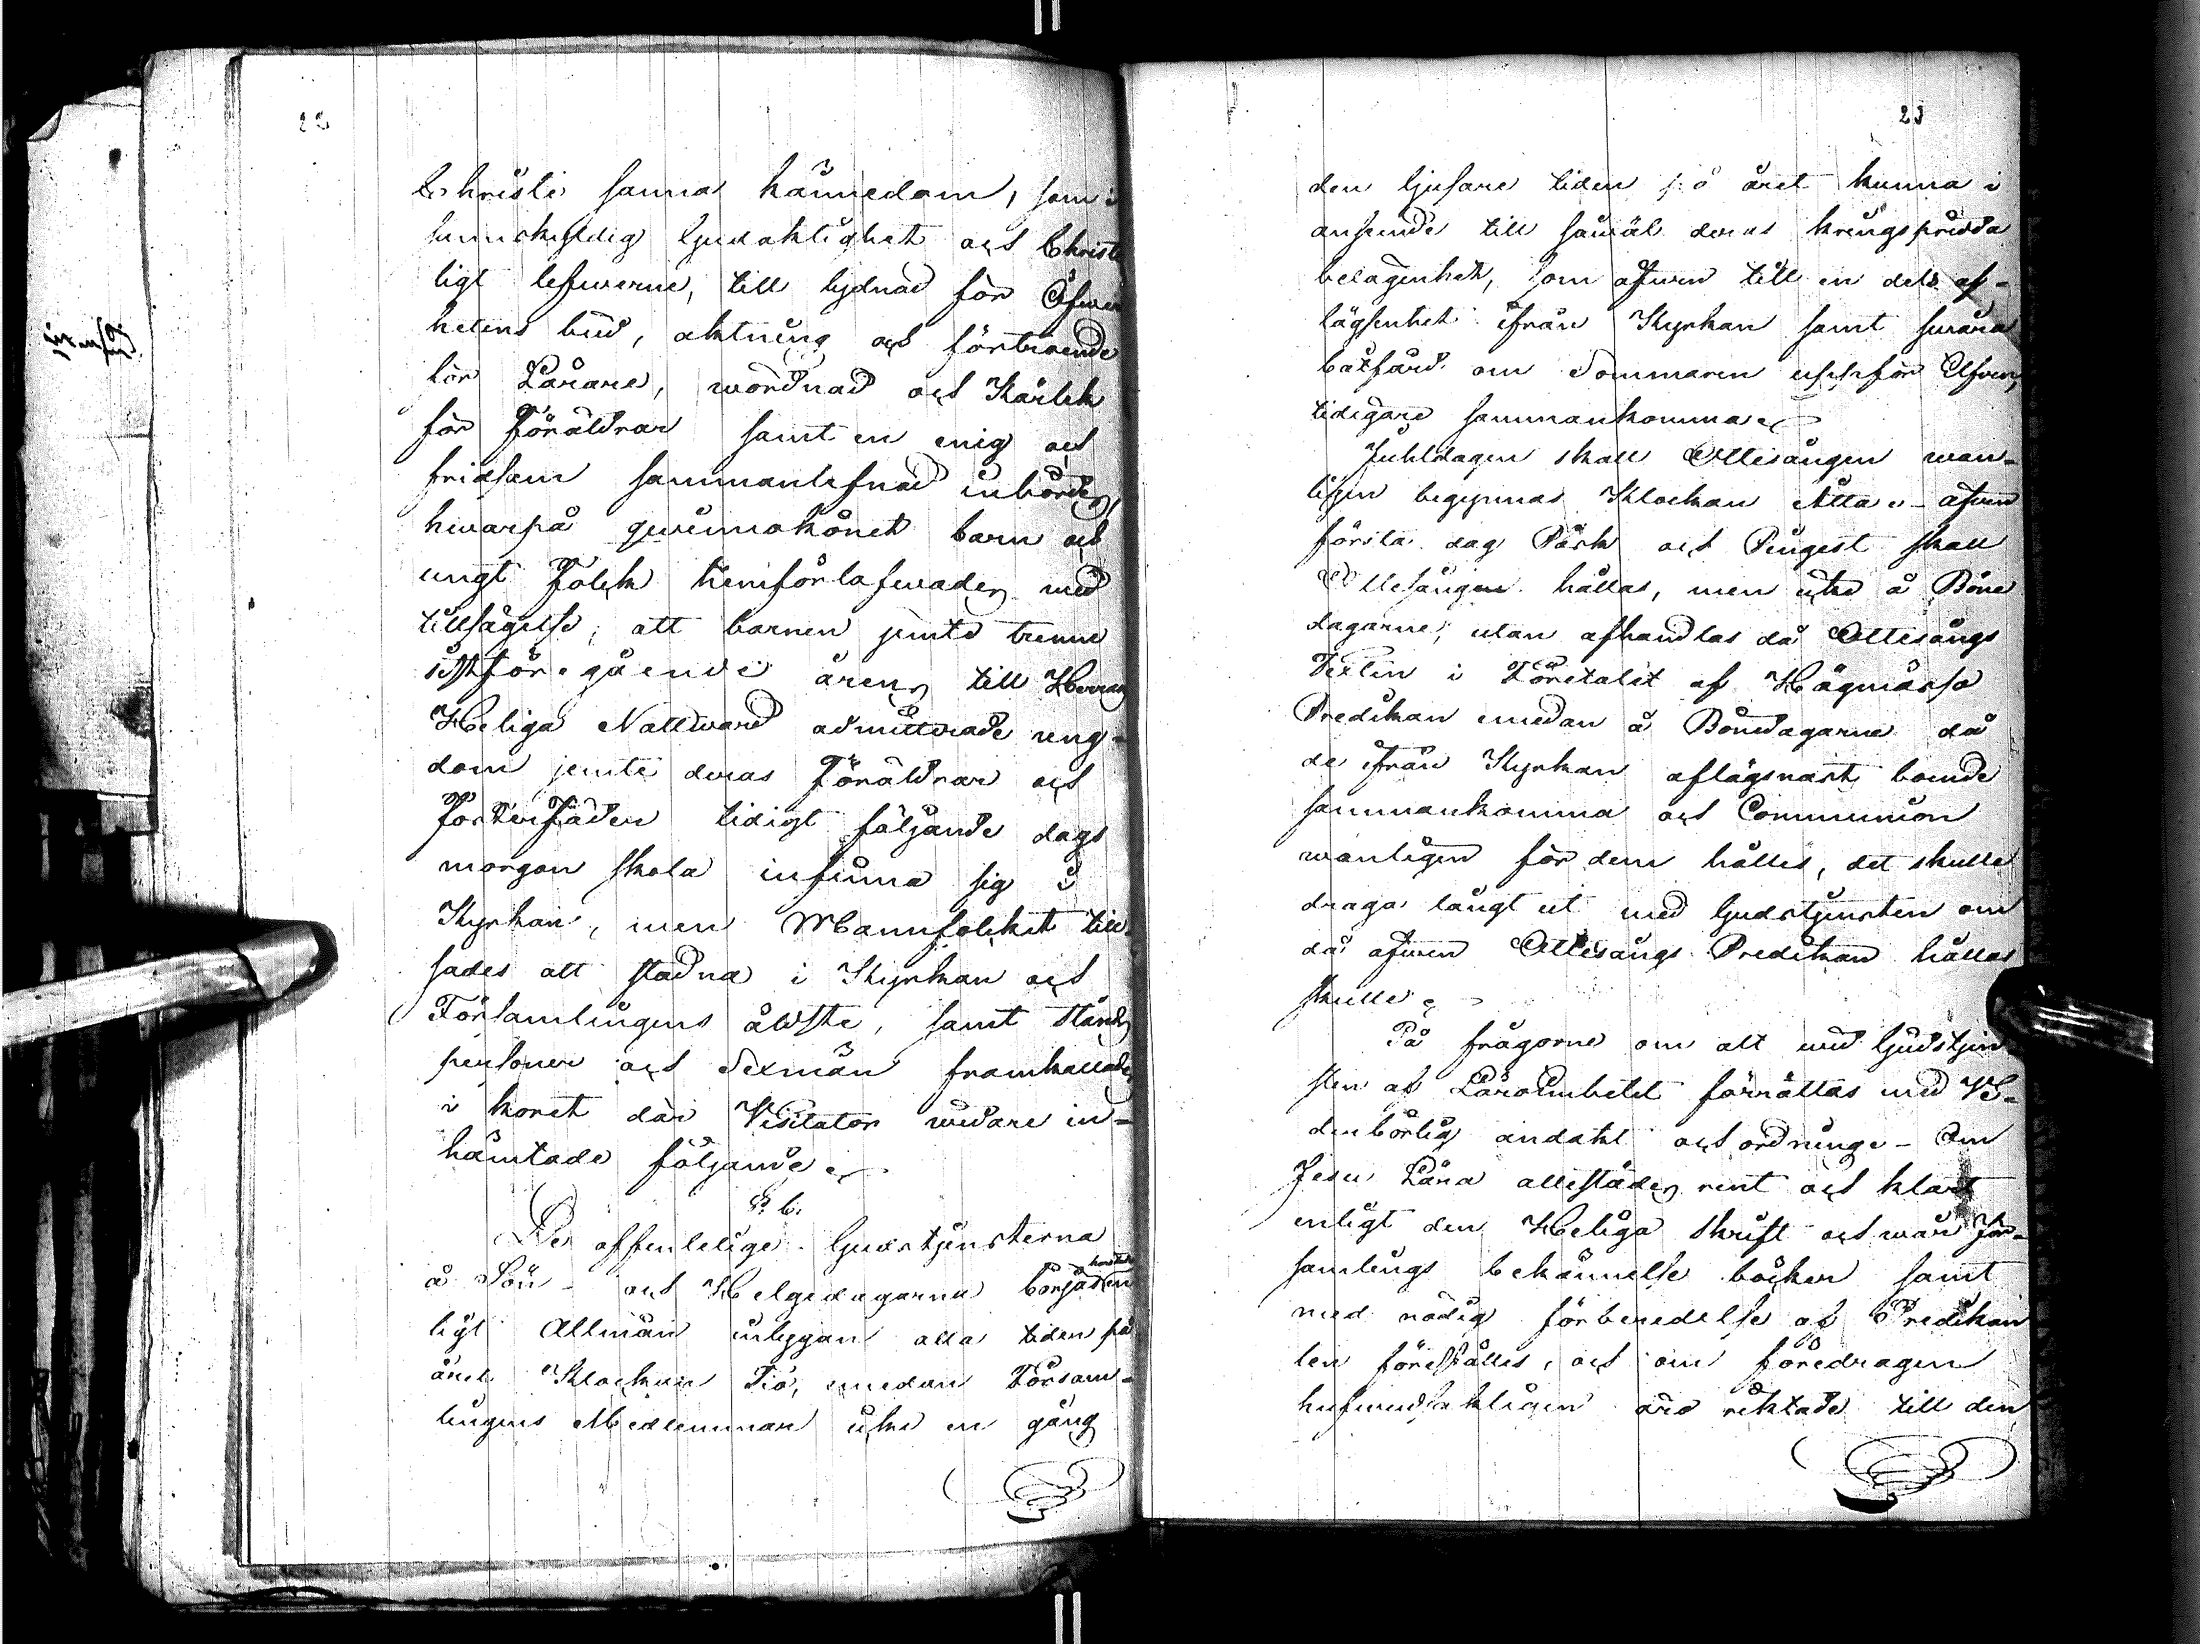 22
Christi sanna kännedom, som i
sannskyldig Gudaktighet och Christe
ligt lefwerne, till lydnad för Öfwer
hetens bud, aktning och förtroende
för Lärare, wördnad och Kärlek
för Föräldrar samt en enig och
fridsam sammanlefnad inbördes,
hwarpå qwinnokönet barn och
ungt Folck hemförlofwades med
tillsägelse, att barnen jemte trenne
sistföregående årens till Herrans
Heliga Nattward admitterade ung-
dom jemte deras Föräldrar och
Fosterfäder tidigt följande dags
morgon skola infinna sig i
Kyrkan, men Mannfolcket till
sades att stadna i Kyrkan och
Församlingens äldste, samt Stånds
personer och Sexmän framkallades
i koret där Visitator widare in-
hämtade följande
§ 6.
De offentelige Gudstjensterna
å Sön- och Helgedagarna börjades en
ligt Allmän inlyggan alla tider på
året Klockan Tio, emedan Försam-
lingens Medlemmar icke en gång
23
den ljusare tiden på året kunna i
anseende till såwäl deras kringspridda
belägenhet, som äfwen till en dels af-
lägsenhet ifrån Kyrkan samt swåra
båtfärd om Sommaren uppför Elfwen
tidigare sammankomma
Juhldagen skall Ottesången wan-
ligen begynnas Klockan Åtta - äfwen
första dag Påsk och Pingest skall
Ottesången hållas, men icke å Böne
dagarne, utan afhandlas då Ottesångs
Texten i Företalet af Högmässo
Predikan emedan å Bönedagarne då
de ifrån Kyrkan aflägsnast boende
sammankomma och Communion
wanligen för dem hålles, det skulle
draga långt ut med Gudstjensten om
då äfwen Ottesångs Predikan hållas
skulle
På frågorne om all wid Gudstjen
sten af LäroEmbetet förrättas med We-
derbörlig andakt och ordning - Om
Jesu Lära allestädes rent och klart
enligt den Heliga Skrift och wår För-
samlings bekännelse böcker samt
med nödig förberedelse af Predikan
ten föreställes, och om föredragen
hufwudsakligen äro riktade till den